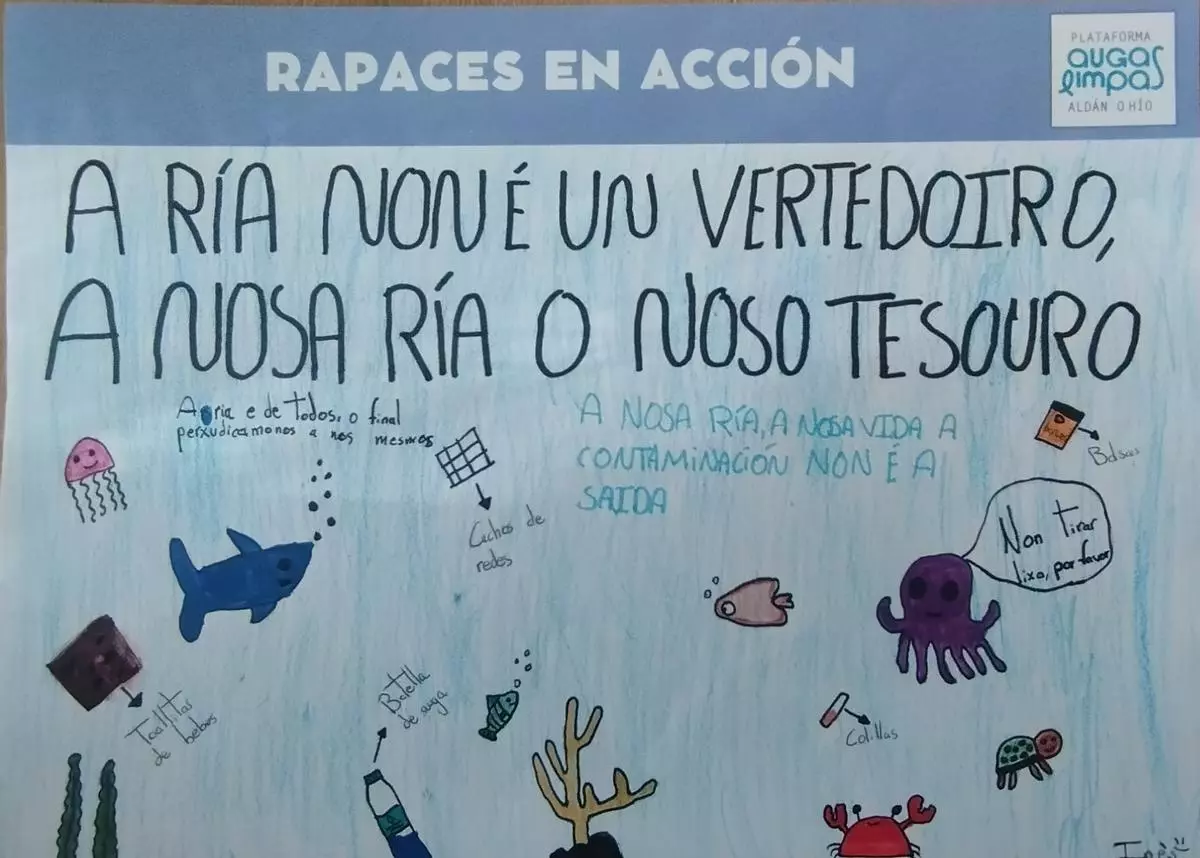 RAPACES EN ACCIÓN
PLATAFORMA
augas
limpas
ALDÁN O HÍO
A RÍA NON É UN VERTEDOIRO,
A NOSA RÍA O NOSO TESOURO
A ria e de Todos, o final
perxudicamonos a nos mesmos
A NOSA RÍA, A NOSA VIDA A
CONTAMINACIÓN NON É A
SAIDA
Bolsas
Cachos de
redes
Non tirar
lixo, por favor
Toallitas
de bebes
Botella
de auga
Colillas
Inés